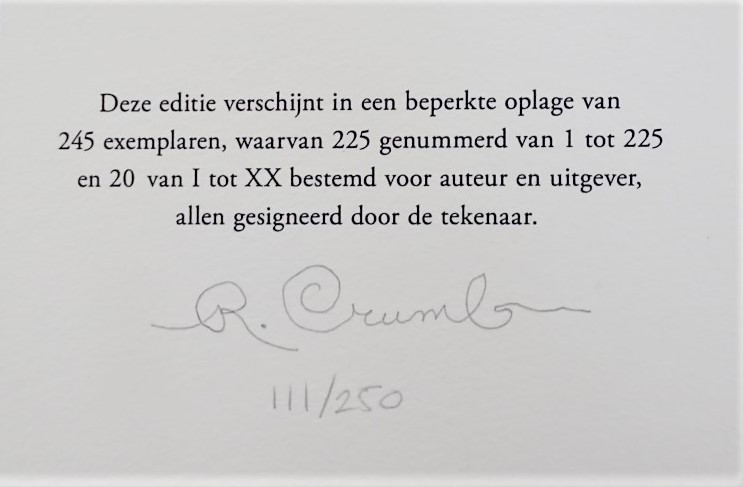 Deze editie verschijnt in een beperkte oplage van
245 exemplaren, waarvan 225 genummerd van 1 tot 225
en 20 van I tot XX bestemd voor auteur en uitgever,
allen gesigneerd door de tekenaar.
R. Crumb
111/250